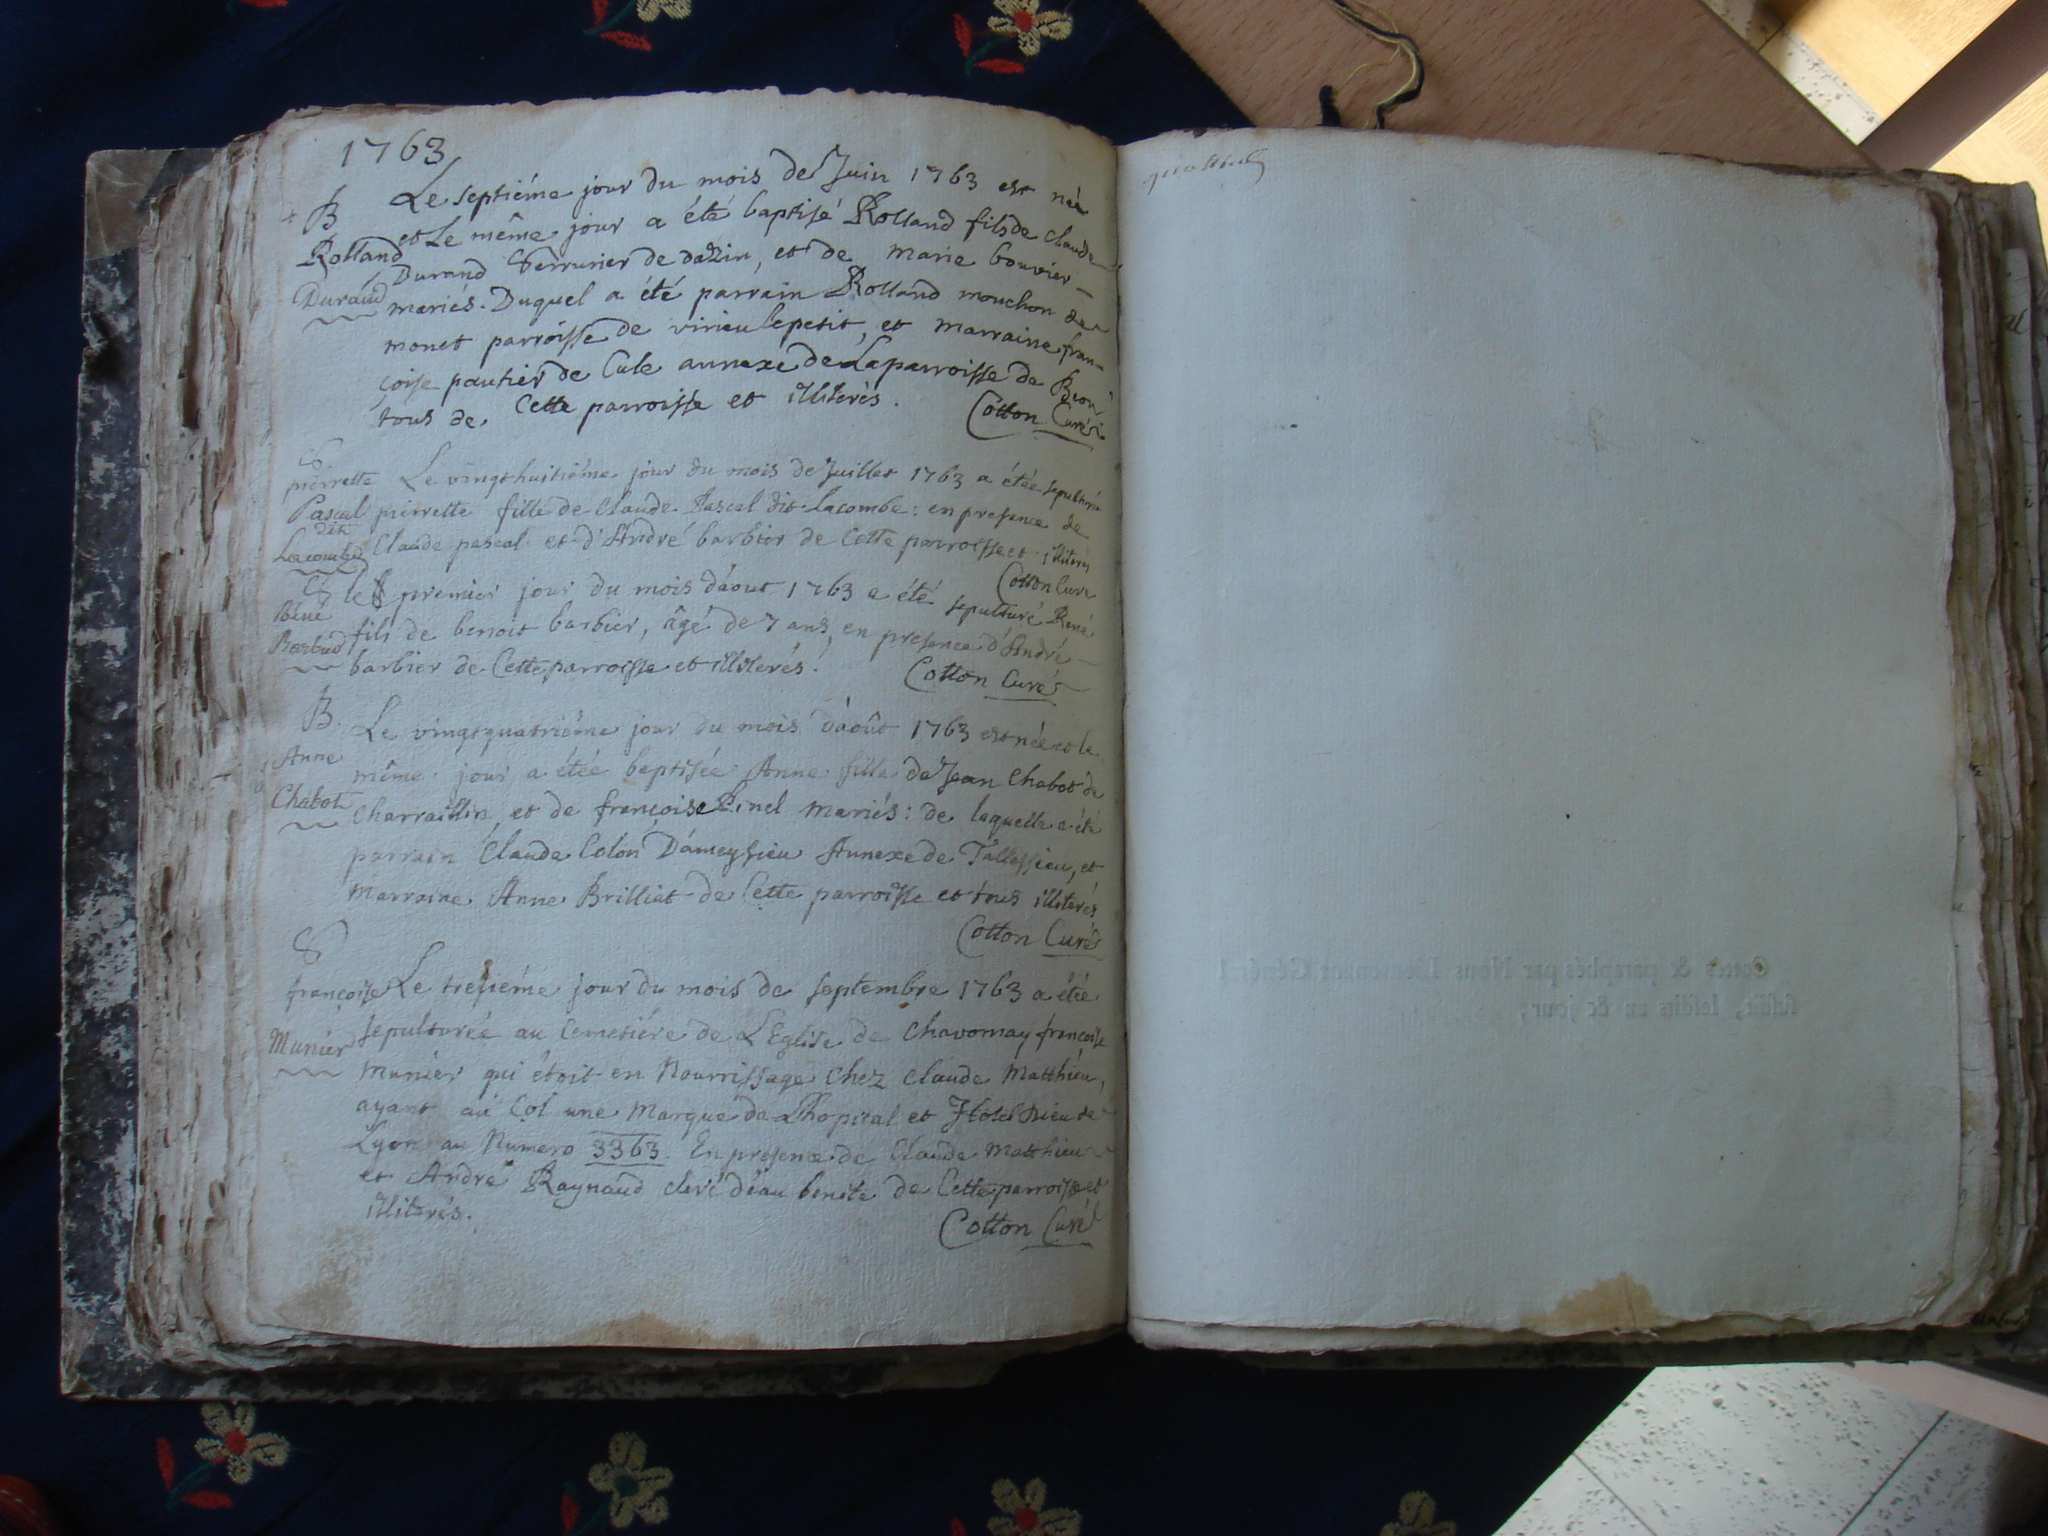 1763
B Le septiéme jour du mois de Juin 1763 est née
et Le même jour a été baptisé Rolland fils de claude
Rolland
Durand Serrurier de dazin, et de marie bouvier
Durand
mariés. Duquel a été parrain Rolland mouchon de
monet parroisse de virieu lepetit, et marraine fran-
çoise pautier de Cule annexe de Laparroisse de Beon
tous de Cette parroisse et illiterés. Cotton Curé
S
pierrette Le vingthuitiéme jour du mois de Juillet 1763 a étée sepulturée
Pascal pierrette fille de Claude Pascal dit Lacombe: en presence de
dit
Lacombe Claude pascal et d'André barbier de Cette parroisse et illiterés
Cotton Curé
S le premier jour du mois d'aout 1763 a été sepulturé René
René
fils de benoit barbier, âgé de 7 ans, en presence d'André
Barbier
barbier de Cette parroisse et illiterés. Cotton Curé
B. Le vingtquatriéme jour du mois d'août 1763 est née et le
Anne
même jour a étée baptisée Anne fille de Jean Chabot de
Chabot
Charraillin et de françoise Pinel mariés: de laquelle a été
parrain Claude Colon D'ameysieu Annexe de Tallissieu, et
marraine Anne Brilliat de Cette parroisse et tous illiterés
Cotton Curé
S
françoise Le tresiéme jour du mois de septembre 1763 a étée
sepulturée au Cemetiére de L'Eglise de Chavornay françoise
Munier
munier qui étoit en Nourrissage Chez Claude Matthieu,
ayant au Col une marque de Lhopital et Hotel Dieu de
Lyon au Numero 3363. En presence de Claude Matthieu
et André Raynaud clerc d'eau benite de Cette parroisse et
illiterés. Cotton Curé
Cottés & paraphés par Nous Lieutenant Général
susdit, lesdits an & jour;